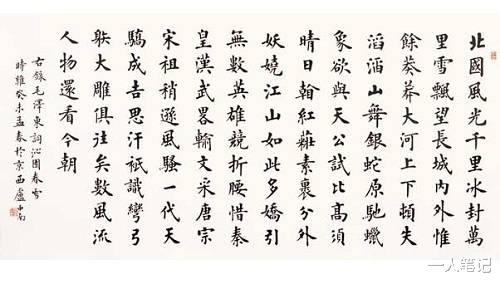 北國風光千里冰封萬
里雪飄望長城內外惟
餘莽莽大河上下頓失
滔滔山舞銀蛇原馳蠟
象欲與天公試比高須
晴日看紅糚素裹分外
妖嬈江山如此多嬌引
無數英雄競折腰惜秦
皇漢武畧輸文采唐宗
宋祖稍遜風騷一代天
驕成吉思汗祇識彎弓
䠶大雕俱往矣數風流
人物還看今朝
右錄毛澤東詞沁園春雪
時維癸未孟春於京西盧中南
一人笔记